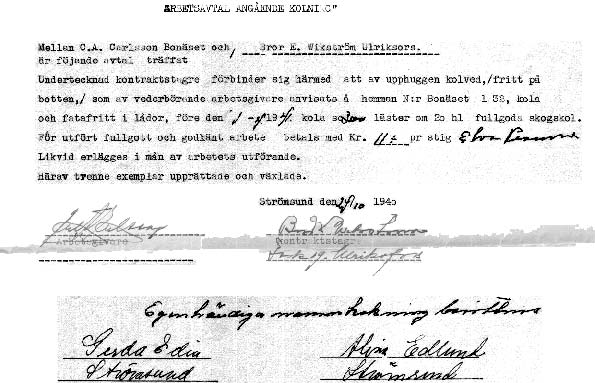 ARBETSAVTAL ANGÅENDE KOLNING"
Mellan C.A. Carlsson Bonäset och, Bror E. Wikström Ulriksfors.
är följande avtal träffat
Undertecknad kontraktstagre förbinder sig härmed att av upphuggen kolved,/fritt på
botten,/ som av vederbörande arbetsgivare anvisats å hemman N:r Bonäset 1 32, kola
och fatafritt i lådor, före den 194 kola läster om 20 hl fullgoda skogskol.
För utfört fullgott och godkänt arbete betals med Kr. 11:- pr stig Elva Kronor
Likvid erlägges i mån av arbetets utförande.
härav trenne exemplar upprättade och växlade.
Strömsund 29/10 1940
Arbetsgivare Kontraktstagre
Ulriksfors
Egenhändiga namnteckning bevittnas
Gerda Edin Alina Edlund
Strömsund Strömsund